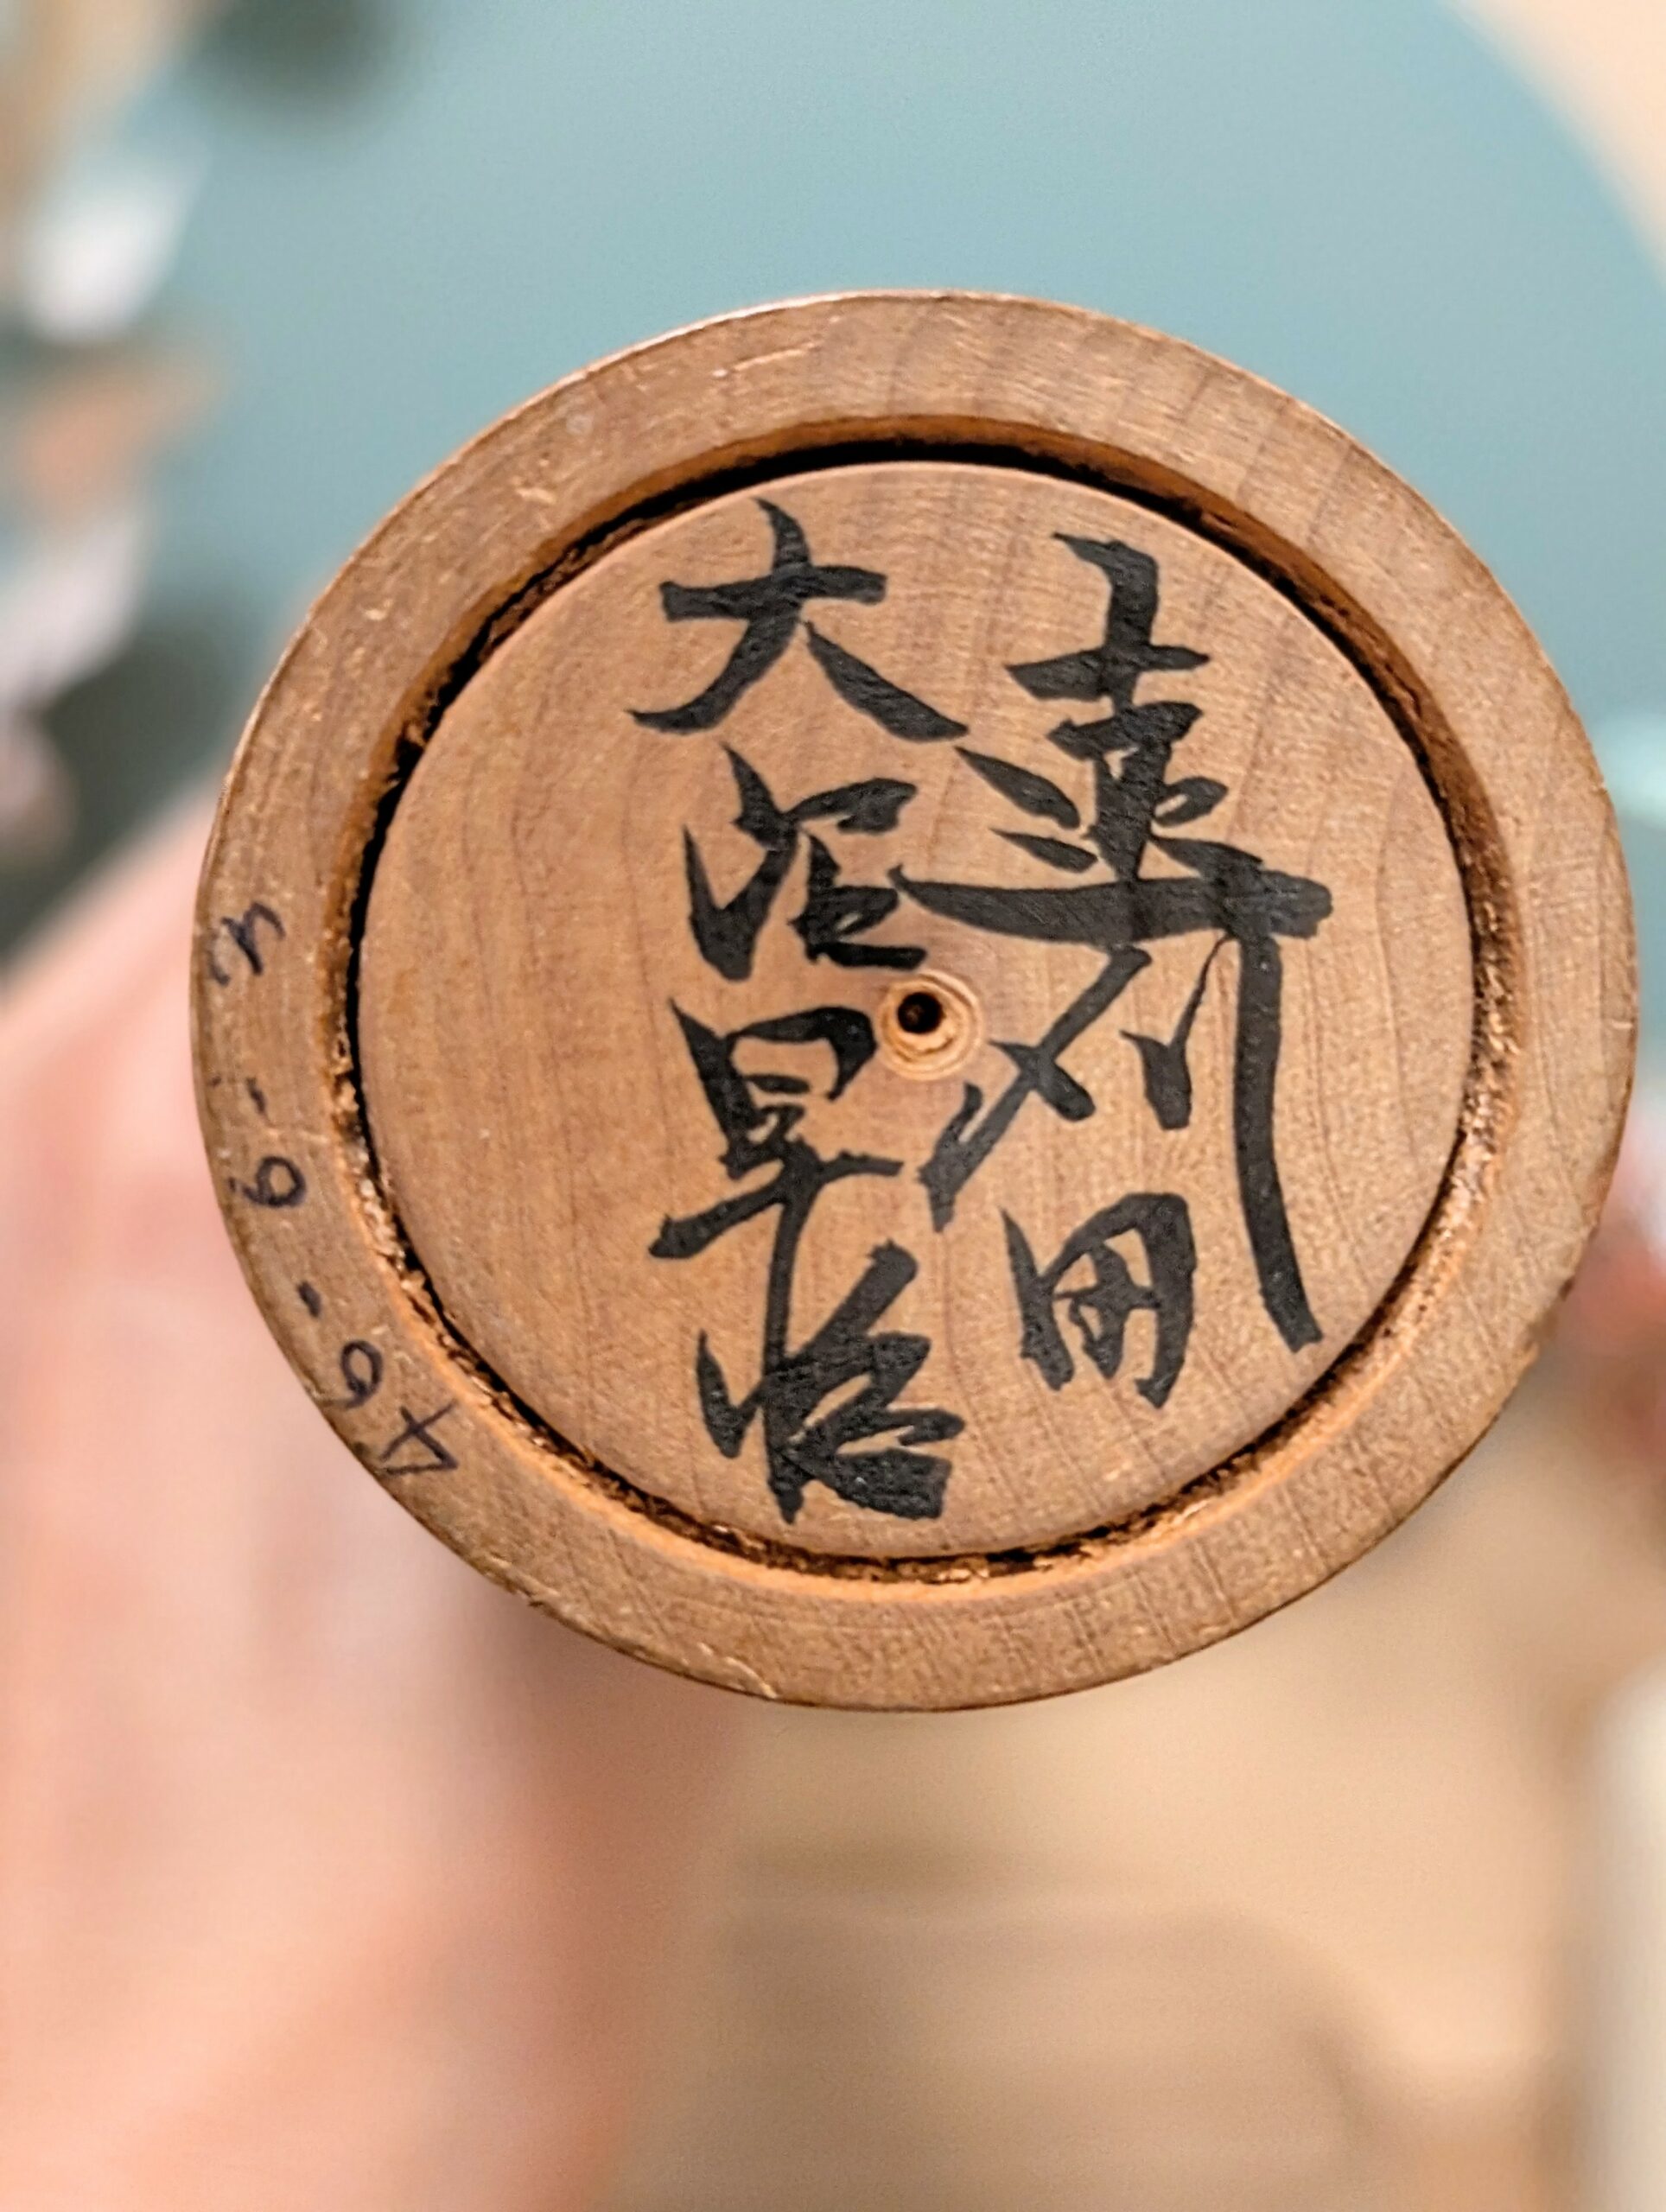 遠刈田
大沼昇治
46-6-3